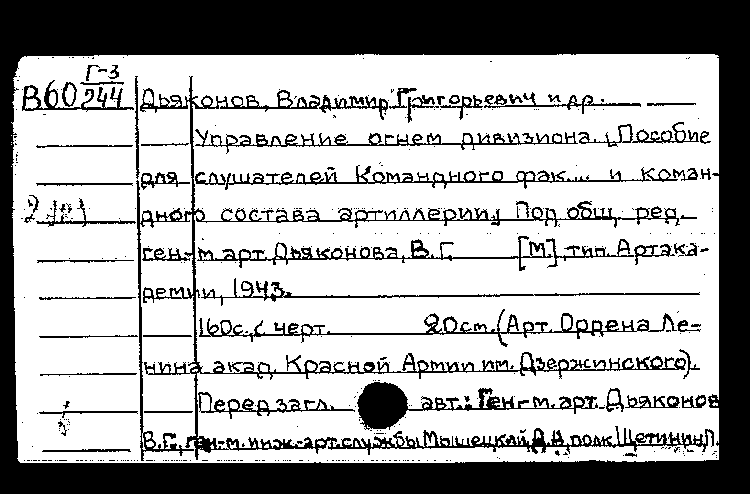 Г-3
В60 244 Дьяконов, Владимир Григорьевич и др.
Управление огнем дивизиона. [Пособие
для слушателей Командного фак.... и коман-
дного состава артиллерии] Под общ. ред.
ген-м арт. Дьяконова, В.Г. [М.], тип. Артака-
демии, 1943.
160с., с черт. 20см. (Арт. Ордена Ле-
нина акад. Красной Армии им. Дзержинского).
Перед загл. авт.: Ген-м. арт. Дьяконов
В.Г., ген-м. инж-арт. службы Мышецкий, полк. Щетинин, П.